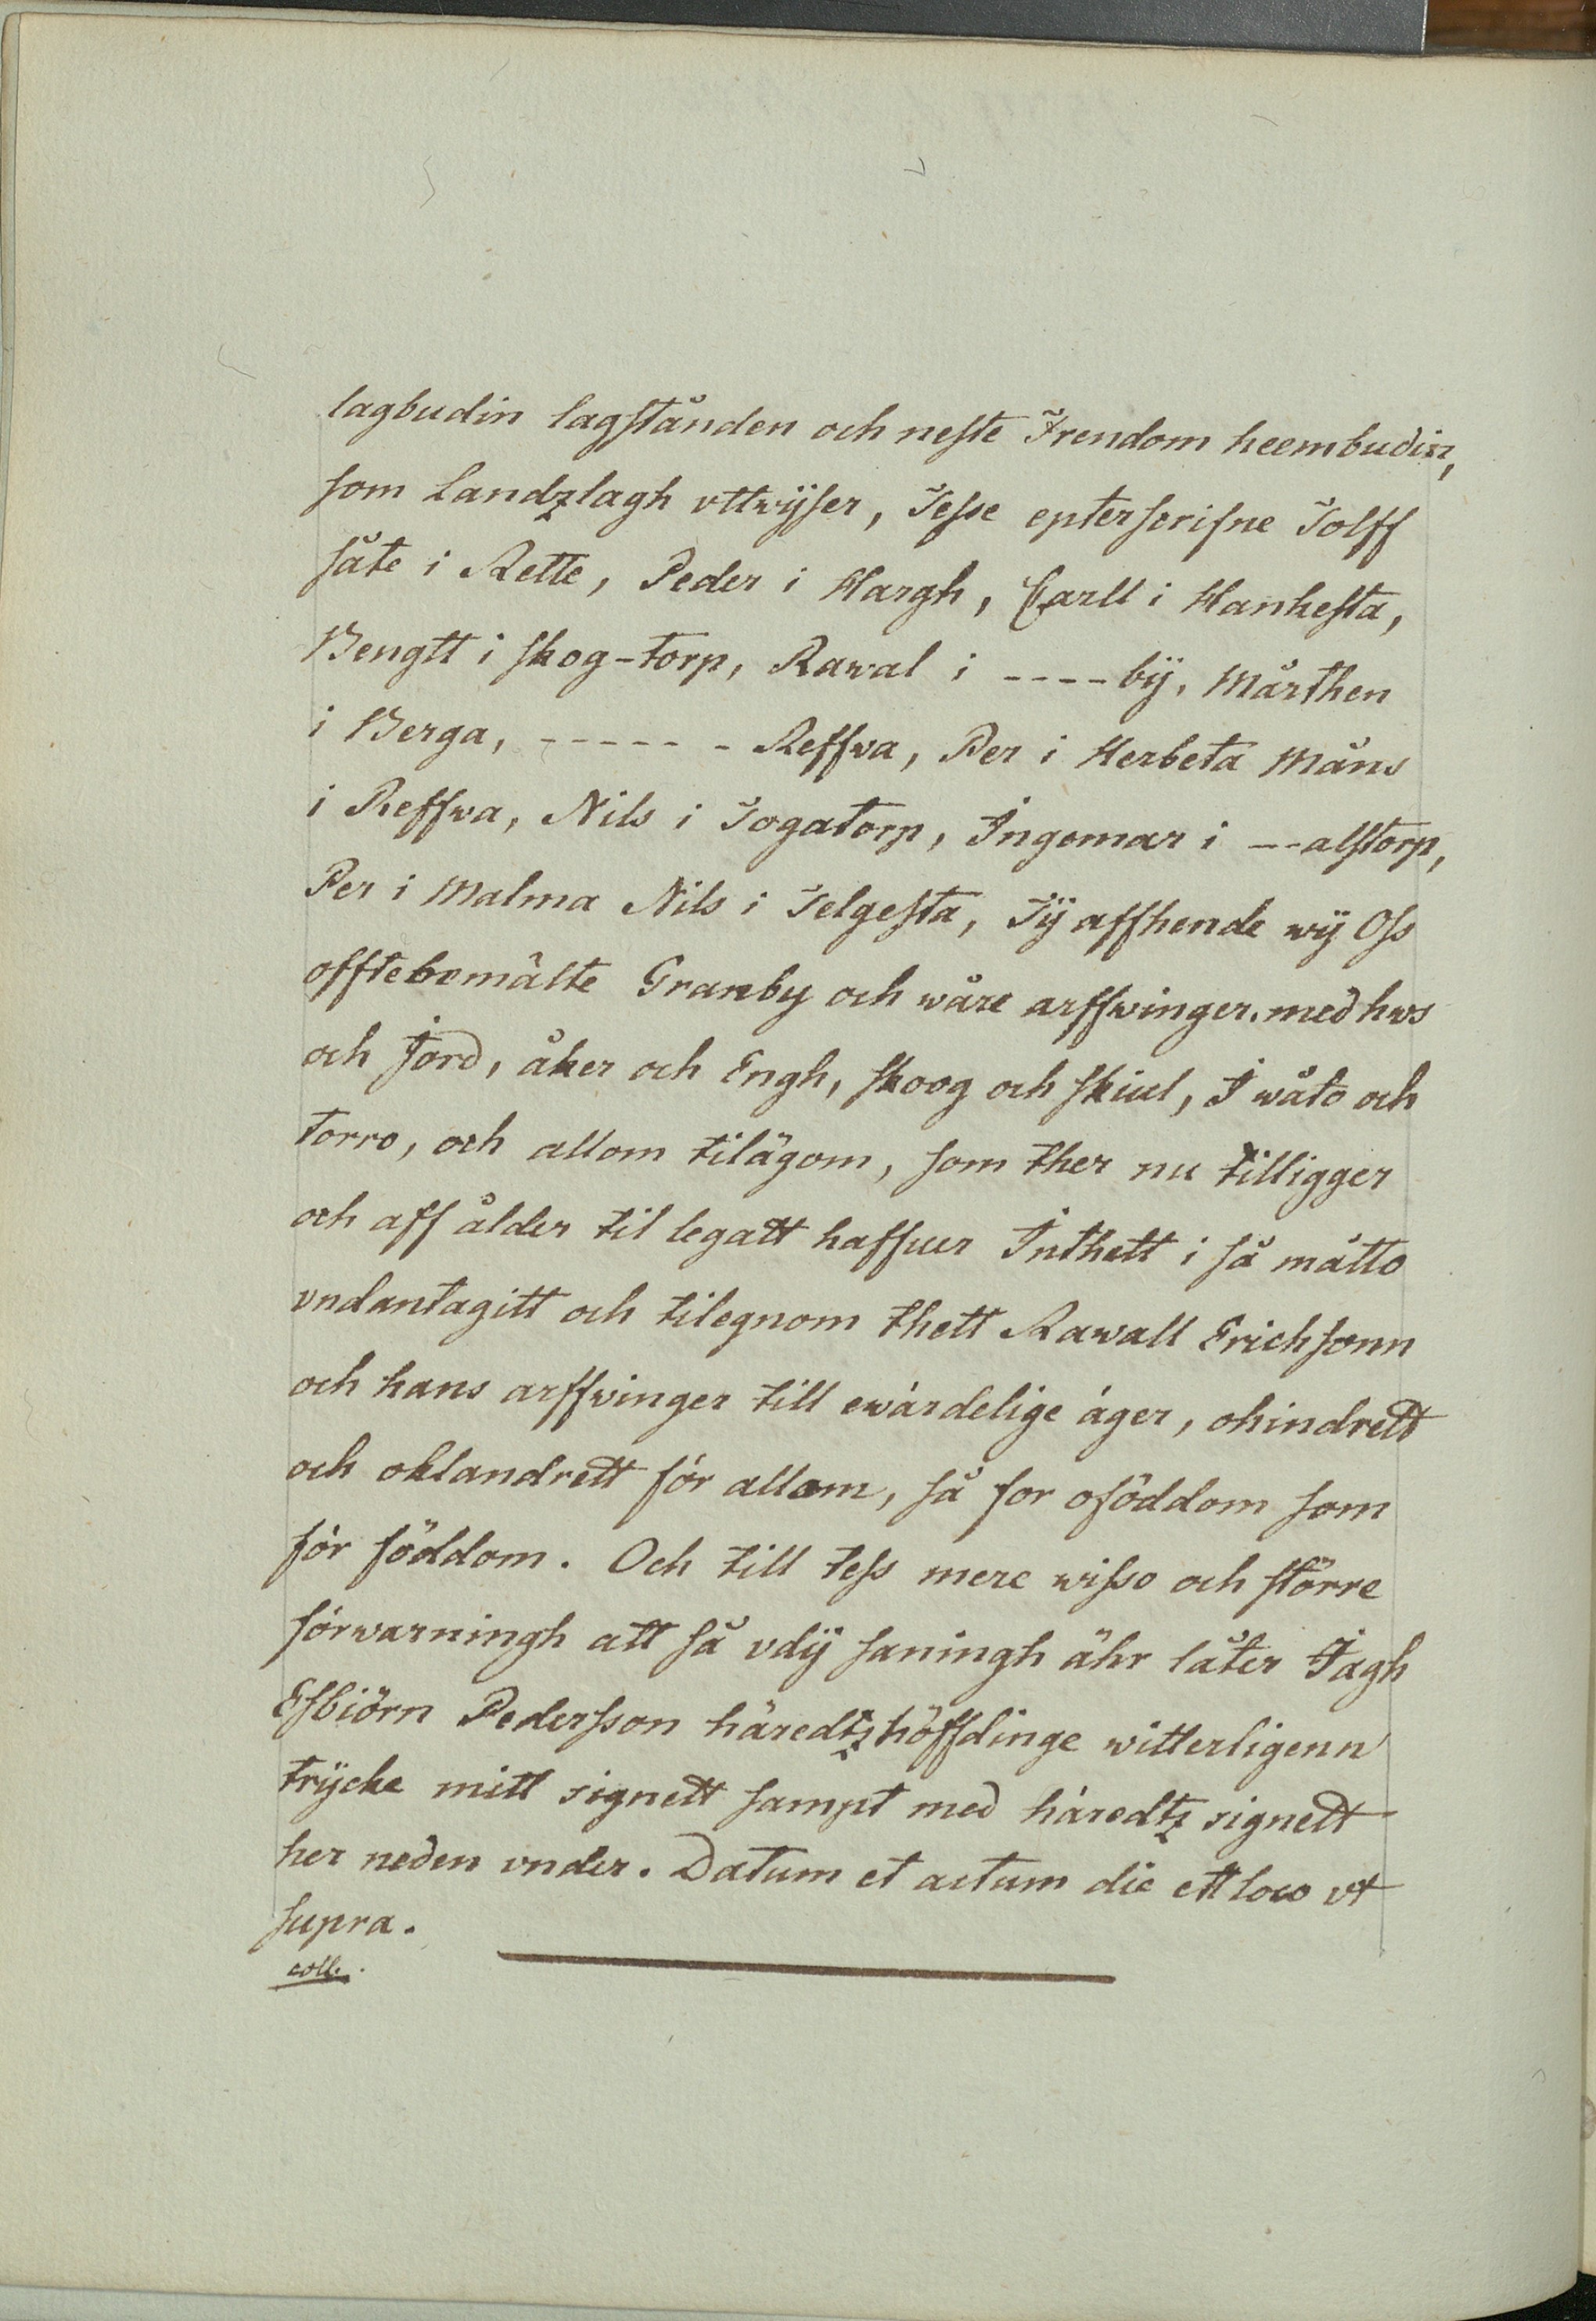 lagbudin lagstånden och neste Frendom heembudin,
som Landzlagh vttwÿser, Tesse epterscrifne Tolff
såte i Rette, Peder i Hargh, Carll i Hankesta,
Bengtt i skog-torp, Rawal i ---- bÿ, Mårthen
i Berga, ------ Reffva, Per i Herbeta Måns
i Reffwa, Nils i Togatorp, Ingemar i --alstorp,
Per i Malma Nils i Telgesta, Tÿ affhende wÿ Oss
offtebemälte Granby och wåre arffwinger, med hws
och Jord, åker och Engh, skoog och skiul, I wåto och
torro, och allom tilägom, som ther nu tilligger
och aff ålder til legatt haffuer Inthett i så måtto
vndantagitt och tilegnom thett Rawall Erichsonn
och hans arffvinger till ewärdelige äger, ohindrett
och oklandrett för allom, så for oföddom som
för föddom. Och till tess mere wisso och större
förwarningh att så vdÿ saningh ähr låter Jagh
Esbiörn Pedersson häredtzhöffdinge witterligenn
trÿcke mitt signett sampt med häredtz signett
her neden vnder. Datum et actum die ett loco vt
supra.
coll.